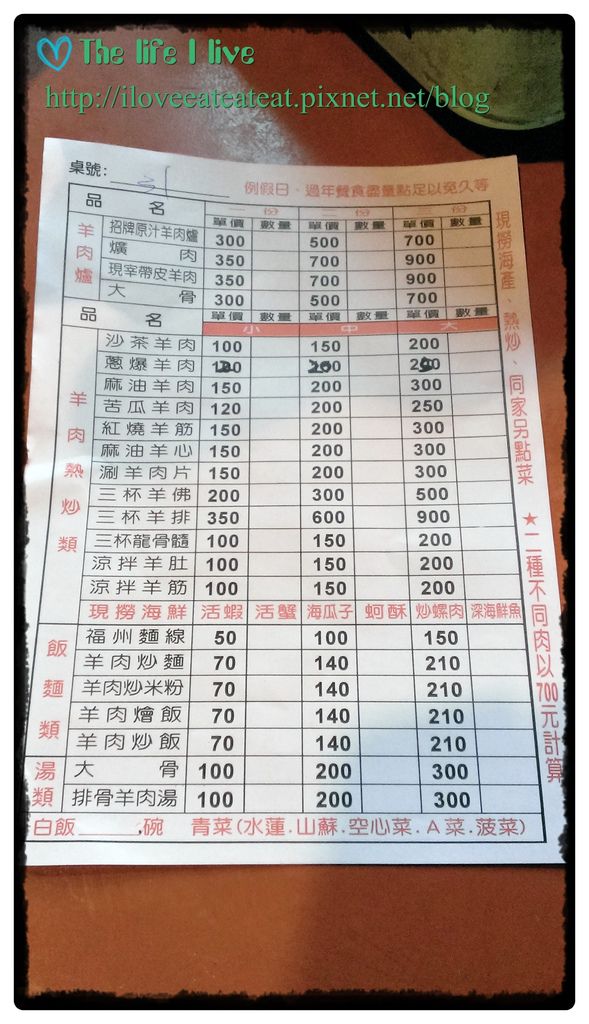 The life I live
http://iloveeateateat.pixnet.net/blog
桌號:
例假日、過年餐食盡量點足以免久等
品 名 一份 二份 三份
單價 數量 單價 數量 單價 數量
羊肉爐
招牌原汁羊肉爐 300 500 700
爌肉 350 700 900
現宰帶皮羊肉 350 700 900
大骨 300 500 700
品 名 單價 數量 單價 數量 單價 數量
小 中 大
羊肉熱炒類
沙茶羊肉 100 150 200
蔥爆羊肉
麻油羊肉 150 200 300
苦瓜羊肉 120 200 250
紅燒羊筋 150 200 300
麻油羊心 150 200 300
涮羊肉片 150 200 300
三杯羊佛 200 300 500
三杯羊排 350 600 900
三杯龍骨髓 100 150 200
涼拌羊肚 100 150 200
涼拌羊筋 100 150 200
現撈海鮮 活蝦 活蟹 海瓜子 蚵酥 炒螺肉 深海鮮魚
飯麵類
福州麵線 50 100 150
羊肉炒麵 70 140 210
羊肉炒米粉 70 140 210
羊肉燴飯 70 140 210
羊肉炒飯 70 140 210
湯類
大骨 100 200 300
排骨羊肉湯 100 200 300
白飯____碗 青菜(水蓮.山蘇.空心菜.A菜.菠菜)
現撈海產、熱炒、同家另點菜 ★二種不同肉以700元計算